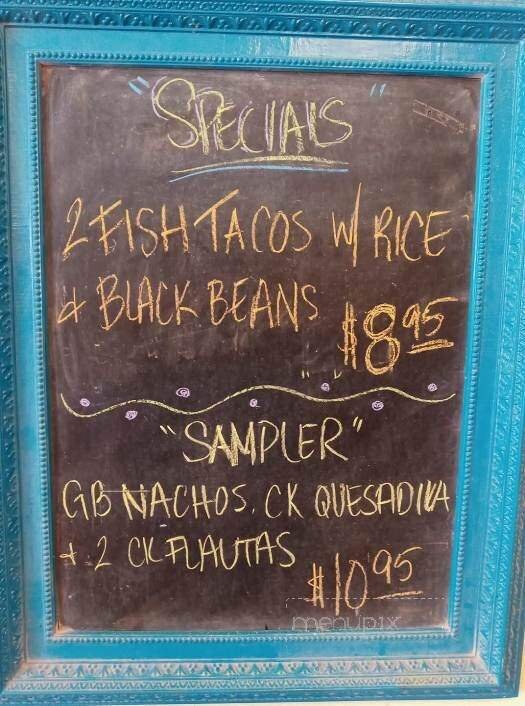 "SPECIALS"
2 FISH TACOS W/ RICE
& BLACK BEANS
$8.95
"SAMPLER"
GB NACHOS, CK QUESADILLA
+ 2 CK FLAUTAS
$10.95
menupix